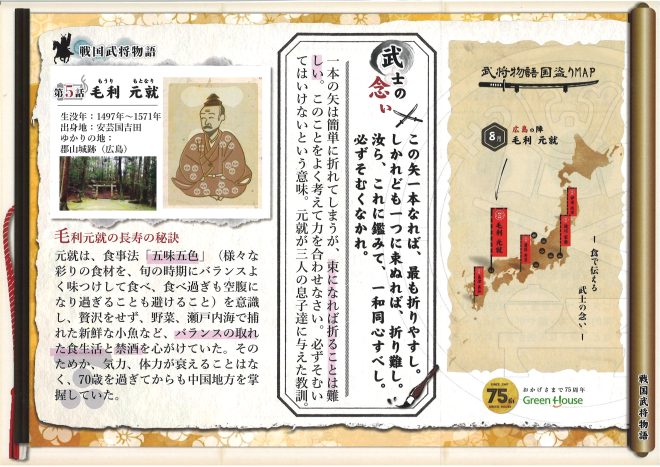 戦国武将物語
第5話
もうり もとなり
毛利 元就
生没年：1497年～1571年
出身地：安芸国吉田
ゆかりの地：
郡山城跡（広島）
毛利元就の長寿の秘訣
元就は、食事法「五味五色」（様々な
彩りの食材を、旬の時期にバランスよ
く味つけして食べ、食べ過ぎも空腹に
なり過ぎることも避けること）を意識
し、贅沢をせず、野菜、瀬戸内海で捕
れた新鮮な小魚など、バランスの取れ
た食生活と禁酒を心がけていた。その
ためか、気力、体力が衰えることはな
く、70歳を過ぎてからも中国地方を掌
握していた。
武士の念い
この矢一本なれば、最も折りやすし。
しかれども一つに束ぬれば、折り難し。
汝ら、これに鑑みて、一和同心すべし。
必ずそむくなかれ。
一本の矢は簡単に折れてしまうが、束になれば折ることは難
しい。このことをよく考えて力を合わせなさい。必ずそむい
てはいけないという意味。元就が三人の息子達に与えた教訓。
武将物語国盗りMAP
8月
広島の陣
毛利 元就
毛利 元就
－ 食で伝える
武士の念い －
SINCE 1947
75th
おかげさまで75周年
Green House
戦国武将物語